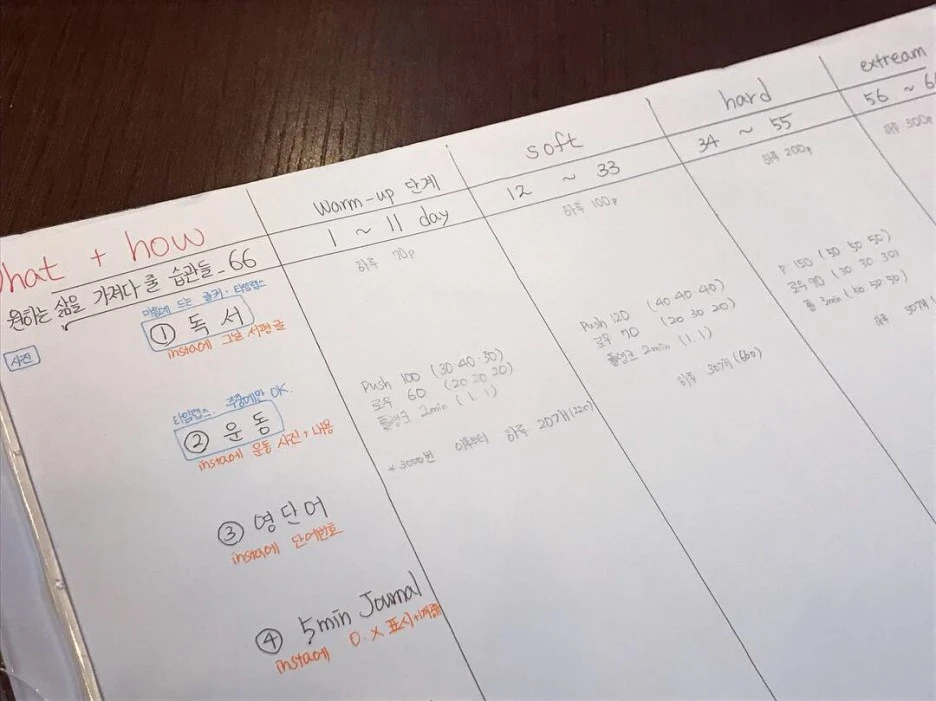 what + how
원하는 삶을 가져다 줄 습관들_66
warm-up 단계
1 ~ 11 day
soft
12 ~ 33
hard
34 ~ 55
extream
56 ~ 6
사진
마음에 드는 글귀·타임랩스
① 독서
insta에 그날 서평 글
하루 70p
하루 100p
하루 200p
하루 300p
타임랩스. 주중에만 OK.
② 운동
insta에 운동 사진 + 내용
Push 100 (30·40·30)
로우 60 (20 20 20)
플랭크 2min (1. 1)
Push 120 (40·40·40)
로우 70 (20 30 20)
플랭크 2min (1. 1)
P 150 (50 50 50)
로우 90 (30 30 30)
플 3min (50·50·50)
③ 영단어
insta에 단어번호
*3000번 이후부터 하루 20개 (220)
하루 30개 (660)
하루
④ 5min Journal
insta에 O. X 표시+